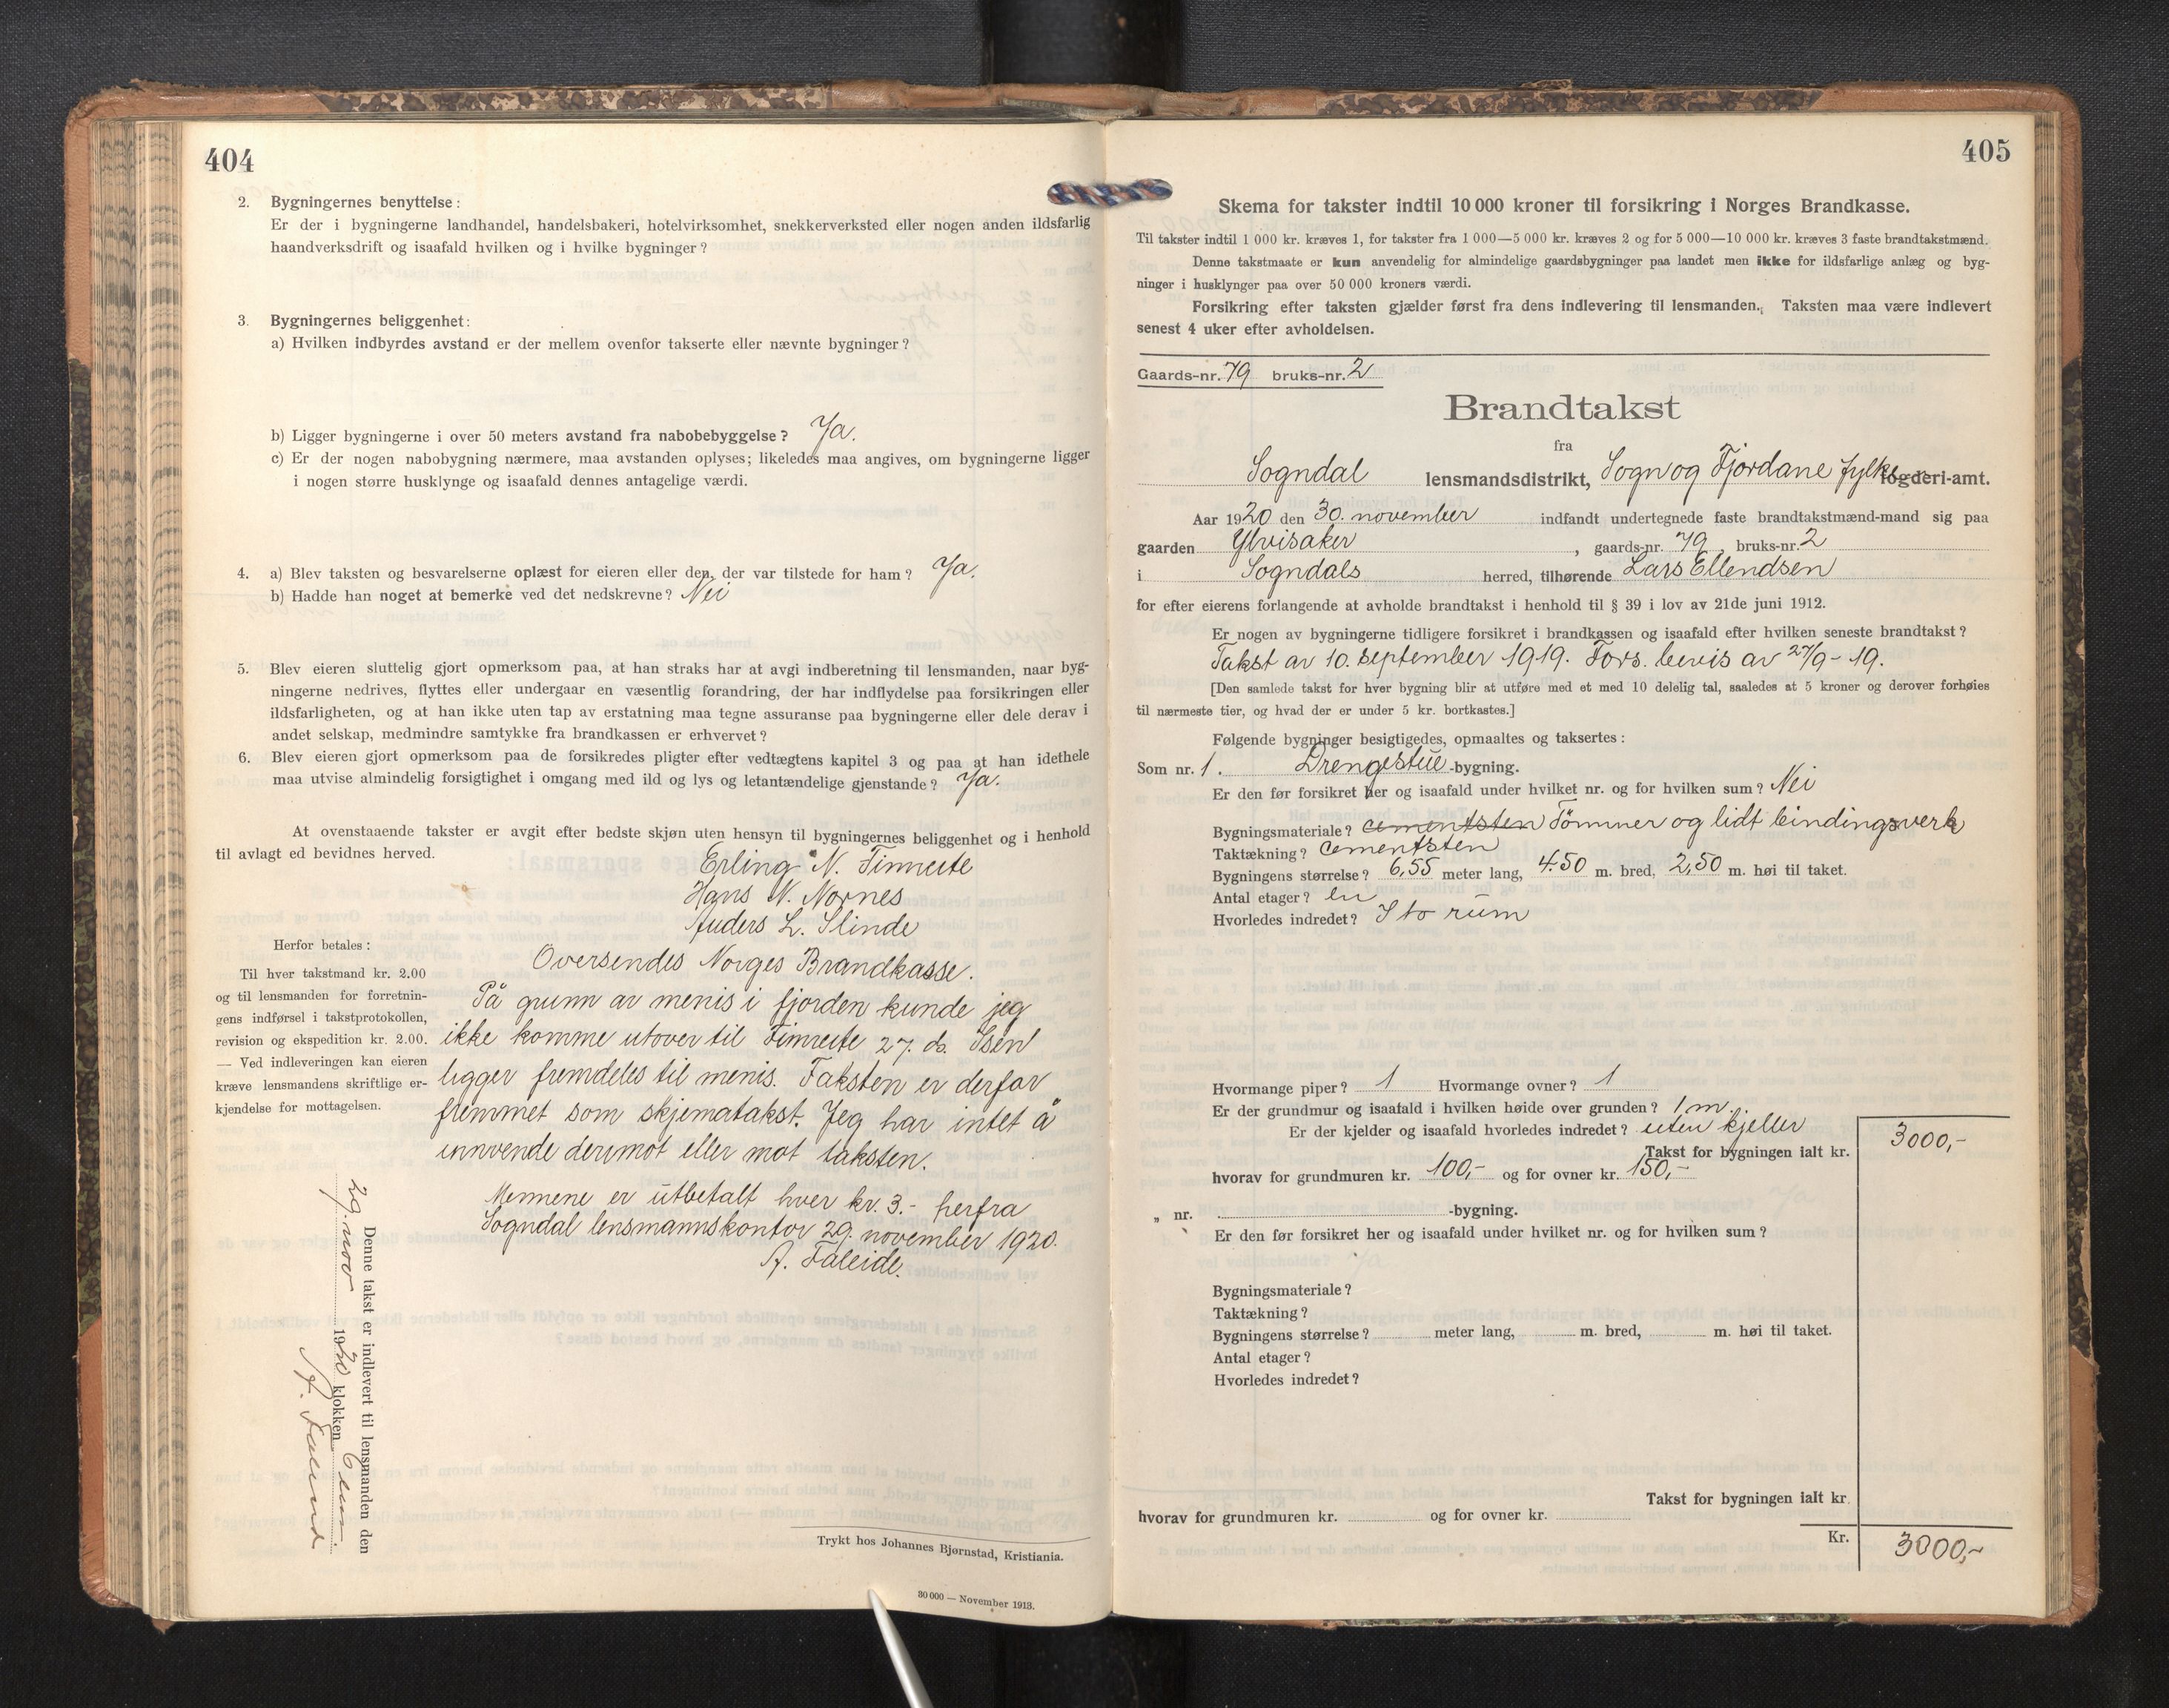 404
2. Bygningernes benyttelse:
Er der i bygningerne landhandel, handelsbakeri, hotelvirksomhet, snekkerverksted eller nogen anden ildsfarlig
haandverksdrift og isaafald hvilken og i hvilke bygninger?
3. Bygningernes beliggenhet:
a) Hvilken indbyrdes avstand er der mellem ovenfor takserte eller nævnte bygninger?
b) Ligger bygningerne i over 50 meters avstand fra nabobebyggelse? Ja.
c) Er der nogen nabobygning nærmere, maa avstanden oplyses; likeledes maa angives, om bygningerne ligger
i nogen større husklynge og isaafald dennes antagelige værdi.
4. a) Blev taksten og besvarelserne oplæst for eieren eller den, der var tilstede for ham? Ja.
b) Hadde han noget at bemerke ved det nedskrevne? Nei
5. Blev eieren sluttelig gjort opmerksom paa, at han straks har at avgi indberetning til lensmanden, naar byg-
ningerne nedrives, flyttes eller undergaar en væsentlig forandring, der har indflydelse paa forsikringen eller
ildsfarligheten, og at han ikke uten tap av erstatning maa tegne assuranse paa bygningerne eller dele derav i
andet selskap, medmindre samtykke fra brandkassen er erhvervet?
6. Blev eieren gjort opmerksom paa de forsikredes pligter efter vedtægtens kapitel 3 og paa at han idethele
maa utvise almindelig forsigtighet i omgang med ild og lys og letantændelige gjenstande? Ja.
At ovenstaaende takster er avgit efter bedste skjøn uten hensyn til bygningernes beliggenhet og i henhold
til avlagt ed bevidnes herved.
Erling N. Fimreite
Hans N. Nornes
Anders L. Slinde
Herfor betales:
Til hver takstmand kr. 2.00
og til lensmanden for forretnin-
gens indførsel i takstprotokollen,
revision og ekspedition kr. 2.00.
— Ved indleveringen kan eieren
kræve lensmandens skriftlige er-
kjendelse for mottagelsen.
Oversendes Norges Brandkasse.
På grunn av menis i fjorden kunde jeg
ikke komme utover til Fimreite 27. ds. Isen
ligger fremdeles til menis. Taksten er derfor
fremmet som skjematakst. Jeg har intet å
innvende derimot eller mot taksten.
Mennene er utbetalt hver kr. 3.- herfra
Sogndal lensmannskontor 29. november 1920.
A. Faleide.
Denne takst er indlevert til lensmanden den
29. nov 1920 klokken 6 em.
A. Faleide
Trykt hos Johannes Bjørnstad, Kristiania.
30 000 — November 1913.
405
Skema for takster indtil 10 000 kroner til forsikring i Norges Brandkasse.
Til takster indtil 1 000 kr. kræves 1, for takster fra 1 000—5 000 kr. kræves 2 og for 5 000—10 000 kr. kræves 3 faste brandtakstmænd.
Denne takstmaate er kun anvendelig for almindelige gaardsbygninger paa landet men ikke for ildsfarlige anlæg og byg-
ninger i husklynger paa over 50 000 kroners værdi.
Forsikring efter taksten gjælder først fra dens indlevering til lensmanden. Taksten maa være indlevert
senest 4 uker efter avholdelsen.
Gaards-nr. 79 bruks-nr. 2
Brandtakst
fra
Sogndal lensmandsdistrikt, Sogn og Fjordane fylke fogderi-amt.
Aar 1920 den 30. november indfandt undertegnede faste brandtakstmænd-mand sig paa
gaarden Ylvisaker, gaards-nr. 79 bruks-nr. 2
i Sogndals herred, tilhørende Lars Ellendsen
for efter eierens forlangende at avholde brandtakst i henhold til § 39 i lov av 21de juni 1912.
Er nogen av bygningerne tidligere forsikret i brandkassen og isaafald efter hvilken seneste brandtakst?
Takst av 10. september 1919. Fors. bevis av 27/9-19.
[Den samlede takst for hver bygning blir at utføre med et med 10 delelig tal, saaledes at 5 kroner og derover forhøies
til nærmeste tier, og hvad der er under 5 kr. bortkastes.]
Følgende bygninger besigtigedes, opmaaltes og taksertes:
Som nr. 1. Drengestue-bygning.
Er den før forsikret her og isaafald under hvilket nr. og for hvilken sum? Nei
Bygningsmateriale? cementsten Tömmer og lidt bindingsverk
Taktækning? Cementsten
Bygningens størrelse? 6,55 meter lang, 4.50 m. bred, 2,50 m. høi til taket.
Antal etager? en
Hvorledes indredet? I to rum
Hvormange piper? 1 Hvormange ovner? 1
Er der grundmur og isaafald i hvilken høide over grunden? 1 m.
Er der kjelder og isaafald hvorledes indredet? uten kjeller
Takst for bygningen ialt kr. 3000,-
hvorav for grundmuren kr. 100,- og for ovner kr. 150,-
„ nr. -bygning.
Er den før forsikret her og isaafald under hvilket nr. og for hvilken sum?
Bygningsmateriale?
Taktækning?
Bygningens størrelse? meter lang, m. bred, m. høi til taket.
Antal etager?
Hvorledes indredet?
Takst for bygningen ialt kr.
hvorav for grundmuren kr. og for ovner kr.
Kr. 3000,-